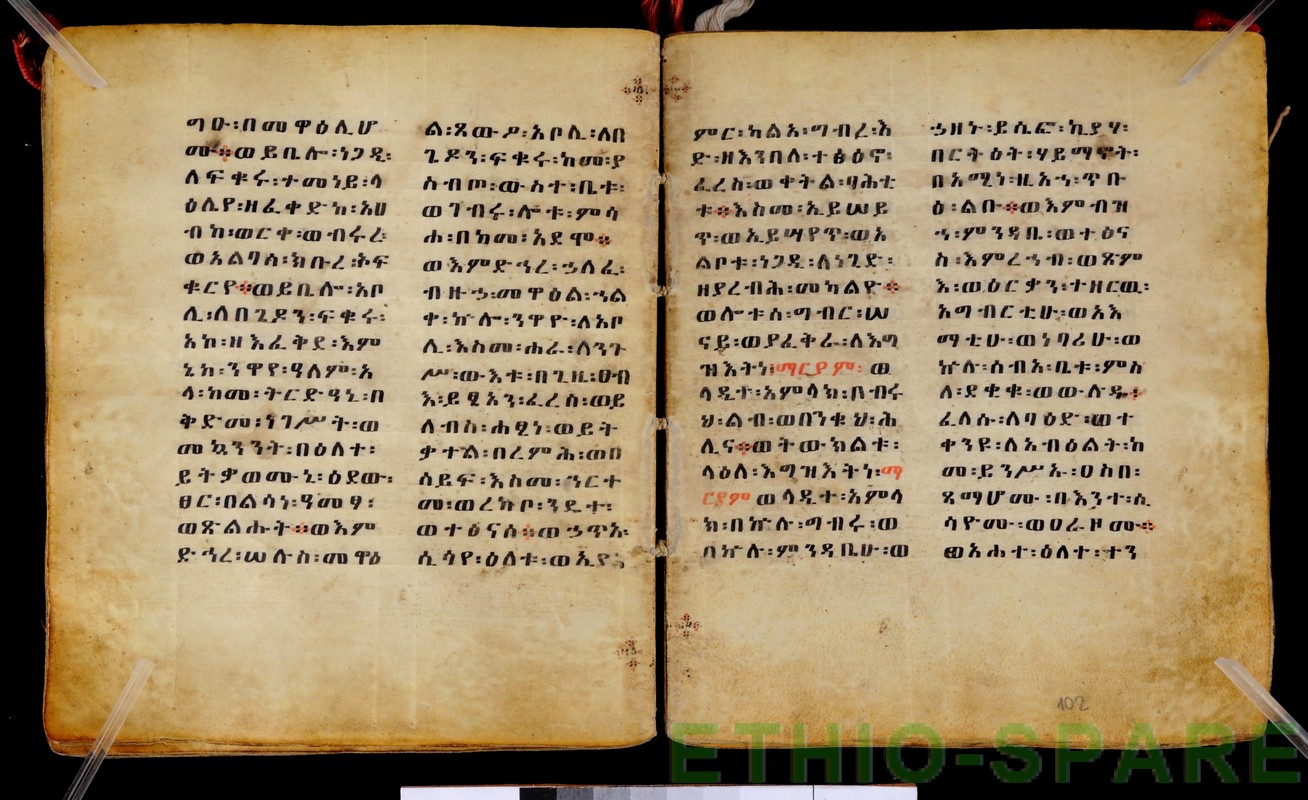 ግዑ፡በመዋዕሊሆ
ሙ።ወይቤሎ፡ነጋዲ፡
ለፍቁሩ፡ተመነይ፡ላ
ዕሌየ፡ዘፈቀድከ፡አሀ
ብከ፡ወርቀ፡ወብሩረ፡
ወአልባሰ፡ክቡረ፡ኦፍ
ቁርየ።ወይቤሎ፡አቦ
ሊ፡ለበጊዶን፡ፍቁሩ፡
አኮ፡ዘእፈቅደ፡እም
ኔከ፡ንዋየ፡ዓለም፡አ
ላ፡ከመ፡ትርድዓኒ፡በ
ቅድመ፡ነገሥት፡ወ
መኳንንት፡በዕለተ፡
ይትቃወሙኒ፡ዕደው፡
ፀር፡በልሳነ፡ዓመፃ፡
ወጽልሑት።ወእም
ድኅረ፡ሠሉስ፡መዋዕ
ል፡ጸውዖ፡አቦሊ፡ለበ
ጊዶን፡ፍቁሩ፡ከመ፡ያ
ስብጦ፡ውስተ፡ቤቱ፡
ወገብሩ፡ሎቱ፡ምሳ
ሐ፡በከመ፡አደሞ።
ወእምድኅረ፡ኃለፈ፡
ብዙኃ፡መዋዕል፡ኀል
ቀ፡ኵሎ፡ንዋዮ፡ለአቦ
ሊ፡እስመ፡ሐራ፡ለንጉ
ሥ፡ውእቱ፡በጊዜ፡ፀብ
እ፡ይፄአን፡ፈረስ፡ወይ
ለብስ፡ሐፂነ፡ወይት
ቃተል፡በረምሕ፡ወበ
ሰይፍ፡እስመ፡ኄርተ
መ፡ወረከቦ፡ንዴተ፡
ወተፅናሰ።ወኃጥአ
ሲሳየ፡ዕለቱ፡ወኢያ
ምር፡ካልአ፡ግብረ፡እ
ድ፡ዘእንበለ፡ተፅዕኖ፡
ፈረስ፡ወቀትል፡ባሕቲ
ቱ።እስመ፡ኢይሠይ
ጥ፡ወኢይሣየጥ፡ወአ
ልቦቱ፡ነጋዲ፡ለነጊድ፡
ዘያረብሕ፡መካልዮ።
ወሎቱሰ፡ግብር፡ሠ
ናይ፡ወያፈቅራ፡ለእግ
ዝእትነ፡ማርያም፡ወ
ላዲተ፡አምላክ፡በብሩ
ህ፡ልብ፡ወበንቁህ፡ሕ
ሊና።ወትውክልቱ፡
ላዕለ፡እግዝእትነ፡ማ
ርያም፡ወላዲተ፡አምላ
ክ፡በኵሉ፡ግብሩ፡ወ
በኵሉ፡ምንዳቤሁ፡ወ
ኃዘኑ፡ይሴፎ፡ኪያሃ፡
በርትዕት፡ሃይማኖት፡
በአሚነ፡ዚአኀ፡ጥቡ
ዕ፡ልቡ።ወእምብዝ
ኀ፡ምንዳቤ፡ወተፅና
ስ፡እምረኀብ፡ወጽም
እ፡ወዕርቃን፡ተዘርዉ፡
አግብርቲሁ፡ወአእ
ማቲሁ፡ወነባሪሁ፡ወ
ኵሉ፡ሰብአ፡ቤቱ፡ምስ
ለ፡ደቂቁ፡ወውሉዱ።
ፈለሱ፡ለባዕድ፡ወተ
ቀንዩ፡ለአብዕልት፡ከ
መ፡ይንሥኡ፡ሀስበ፡
ጻማሆሙ፡በእንተ፡ሲ
ሳዮሙ፡ወዐራዞሙ።
ወአሐተ፡ዕለተ፡ተን
102
ETHIO-SPARE